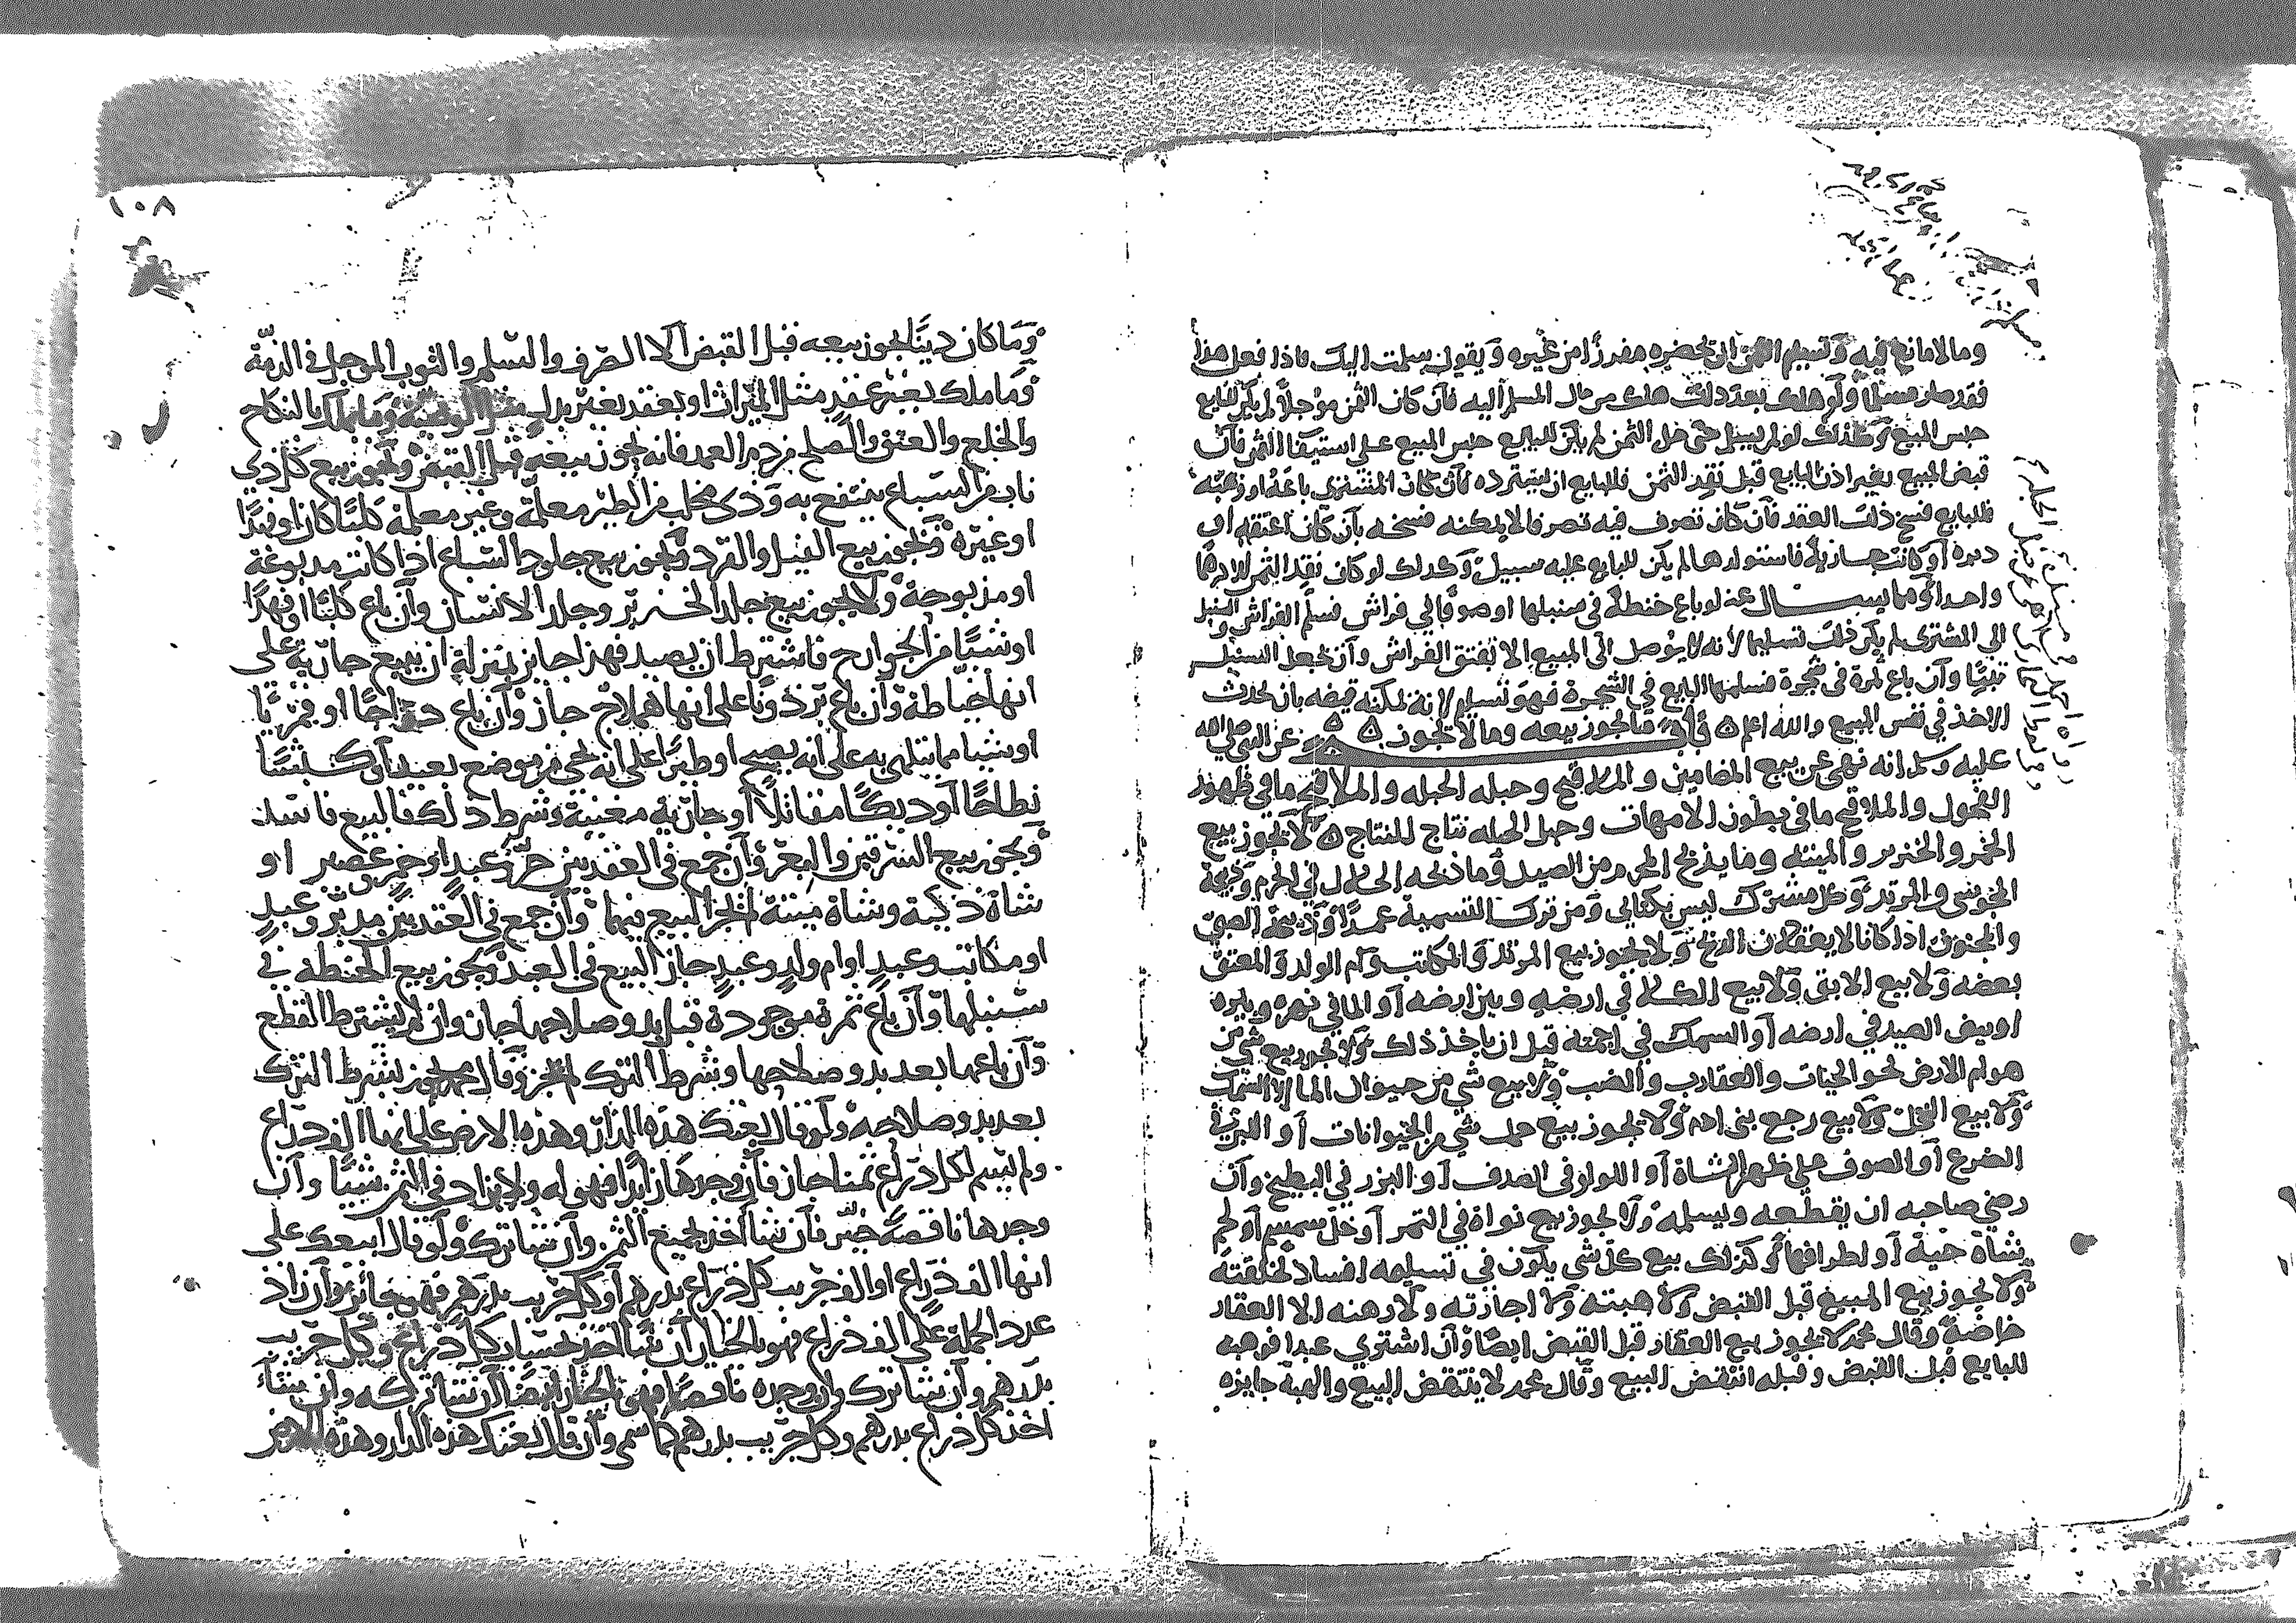 وما لا مانع فيه وتسليم الثمن ان يحضره مفرزًا من غيره ويقول سلمت اليك فاذا فعل هذا
فقد صار مسلما ولو هلك بعد ذلك هلك من مال المسلم اليه فان كان الثمن موجلا لم يكن للبايع
حبس المبيع وكذلك لو لم يسلم حتى حل الثمن لم يكن للبايع حبس المبيع على استيفا الثمن فان
قبض المبيع بغير اذن البايع قبل نقد الثمن فللبايع ان يسترده فان كان المشتري باعه او وهبه
فللبايع فسخ ذلك العقد فان كان تصرف فيه تصرفا لا يمكنه فسخه بان كان اعتقه او
دبره او كانت جارية فاستولدها لم يكن للبايع عليه سبيل وكذلك لو كان نقد الثمن الا درهما
واحدا ومما يسال عنه لو باع حنطة في سنبلها او صوفا في فراش فسلم الفراش والسنبل
الي المشتري لم يكن ذلك تسليما لانه لا يوصل الى المبيع الا بفتق الفراش وان يجعل السنبل
تبنًا وان باع ثمرة في شجرة فسلمها البايع في الشجرة فهو تسليم لانه يمكنه قبضه بان يحدث
الاخذ في نفس المبيع والله اعلم ما يجوز بيعه وما لا يجوز عن النبي صلى الله
عليه وسلم انه نهى عن بيع المضامين و الملاقيح وحبله الحبله و ما في ظهور
الفحول والملاقيح ما في بطون الامهات وحبل الحبله نتاج للنتاج لا يجوز بيع
الخمر والخنزير والميته وما يذبح المحرم من الصيد وما ذبحه الحلال في الحرم وذبيحة
المجوسي والمرتد وكل مشترك ليس بكتابي ومن ترك التسمية عمدًا وذبيحة الصبي
والمجنون اذا كانا لا يعقلان الذبح ولا يجوز بيع المرتد والمكاتب وام الولد والمعتق
بعضه ولا بيع الابق ولا بيع الكلا في ارضه وبين ارضه او الما في نهره وبئره
او بيض الصيد في ارضه او السمك في اجمته قبل ان ياخذ ذلك ولا يجوز بيع شي من
هوام الارض نحو الحيات والعقارب والضب ولا بيع شي من حيوان الما الا السمك
ولا بيع النحل ولا بيع رجع بني ادم ولا يجوز بيع حمل شي من الحيوانات او اللبن في
الضرع او الصوف على ظهر الشاة او اللولو في الصدف او البزر في البطيخ وان
رضي صاحبه ان يقطعه ويسلمه ولا يجوز بيع نواة في التمر او خل سمسم او لحم
شاة حية او اطرافها وكذلك بيع كل شي يكون في تسليمه افساد لخلقته
ولا يجوز بيع المبيع قبل القبض ولا هبته ولا اجازته ولا رهنه الا العقار
خاصة وقال محمد لا يجوز بيع العقار قبل القبض ايضا وان اشترى عبدا فوهبه
للبايع قبل القبض وقبله انتقض البيع وقال محمد لا ينتقض البيع والهبة جايزه
١٠٨
وما كان دينًا يجوز بيعه قبل القبض الا الصرف والسلم والثوب الموجل في الذمة
وما ملك بغير عقد مثل الميراث او بعقد بغير بدل مثل الوصية وما ملك بالنكاح
والخلع والعتق والصلح من دم العمد فانه يجوز بيعه قبل القبض ويجوز بيع كل ذي
ناب من السباع ينتفع به وذي مخلب من الطير معلمة وغير معلمة كلبًا كان او فهدًا
او غيره ويجوز بيع الفيل والقرد ويجوز بيع جلود السباع اذا كانت مدبوغة
او مذبوحة ولا يجوز بيع جلد الخنزير وجلد الانسان وان باع كلبًا او فهدًا
او شيًا من الجوارح فاشترط ان يصيد فهذا جايز بمنزلة ان يبيع جارية على
انها خياطة وان باع برذونا على انها هملاج جاز وان باع دجاجًا او قمريًا
او شيا مما يتلهى به على انه يصيح او طيرًا على انه يجي من موضع بعيد او كبشا
نطاحًا او ديكًا مقاتلاً او جارية مغنية وشرط ذلك فالبيع فاسد
ويجوز بيع السرقين والبعر وان جمع في العقد بين حر وعبد او خمر وعصير او
شاة ذكية وشاة ميتة لم يجز البيع فيهما وان جمع في العقد بين مدبر وعبد
او مكاتب وعبد او ام ولد وعبد جاز البيع في العبد ويجوز بيع الحنطة في
سنبلها وان باع ثمرة موجودة قبل بدو صلاحها جاز وان لم يشترط القطع
وان باعها بعد بدو صلاحها وشرط الترك لم يجز وقال محمد يجوز بشرط الترك
بعد بدو صلاحه ولو قال بعتك هذه الدار وهذه الارض على انها الف ذراع
ولم يسم لكل ذراع ثمنا جاز فان وجدها زايدا فهو له ولا يزاد في الثمن شيًا وان
وجدها ناقصة خير فان شا اخذ بجميع الثمن وان شا ترك ولو قال ابيعك على
انها الف ذراع او الف جريب كل ذراع بدرهم او كل جريب بدرهم فهي جائز وان زاد
عدد الجملة على الف ذراع فهو بالخيار ان شا اخذ بحساب كل ذراع وكل جريب
بدرهم وان شا ترك وان وجده ناقصًا فهي بالخيار ايضا ان شا تركه وان شاء
اخذ كل ذراع بدرهم وكل جريب بدرهم كما سمى وان قال بعتك هذه الدار وهذه الارض